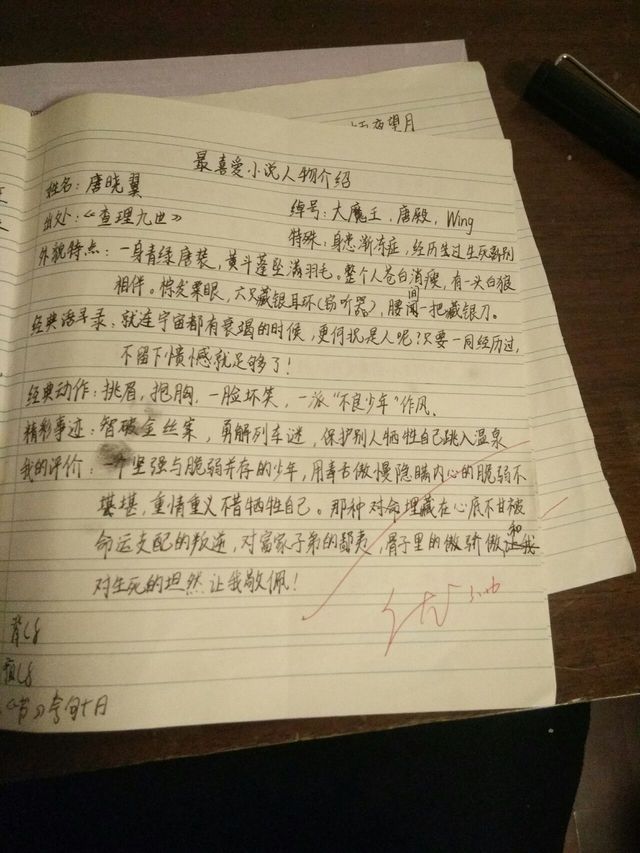 夜望月
最喜爱小说人物介绍
姓名：唐晓翼
出处：《查理九世》
绰号：大魔王，唐殿，Wing
特殊：身患渐冻症，经历生过生死离别
外貌特点：一身青绿唐装，黄斗蓬坠满羽毛。整个人苍白消瘦，有一头白狼
相伴。棕发栗眼，六只藏银耳环（窃听器），腰间一把藏银刀。
经典语录：就连宇宙都有衰竭的时候，更何况是人呢？只要一同经历过，
不留下愤憾就足够了！
经典动作：挑眉，抱胸，一脸坏笑，一派“不良少年”作风、
精彩事迹：智破金丝案，勇解列车谜，保护别人牺牲自己跳入温泉
我的评价：一个坚强与脆弱并存的少年，用毒舌傲慢隐瞒内心的脆弱不
堪堪，重情重义不惜牺牲自己。那种对命埋藏在心底不甘被
命运支配的叛逆，对富家子弟的鄙夷，骨子里的傲骄傲和
对生死的坦然让我敬佩！